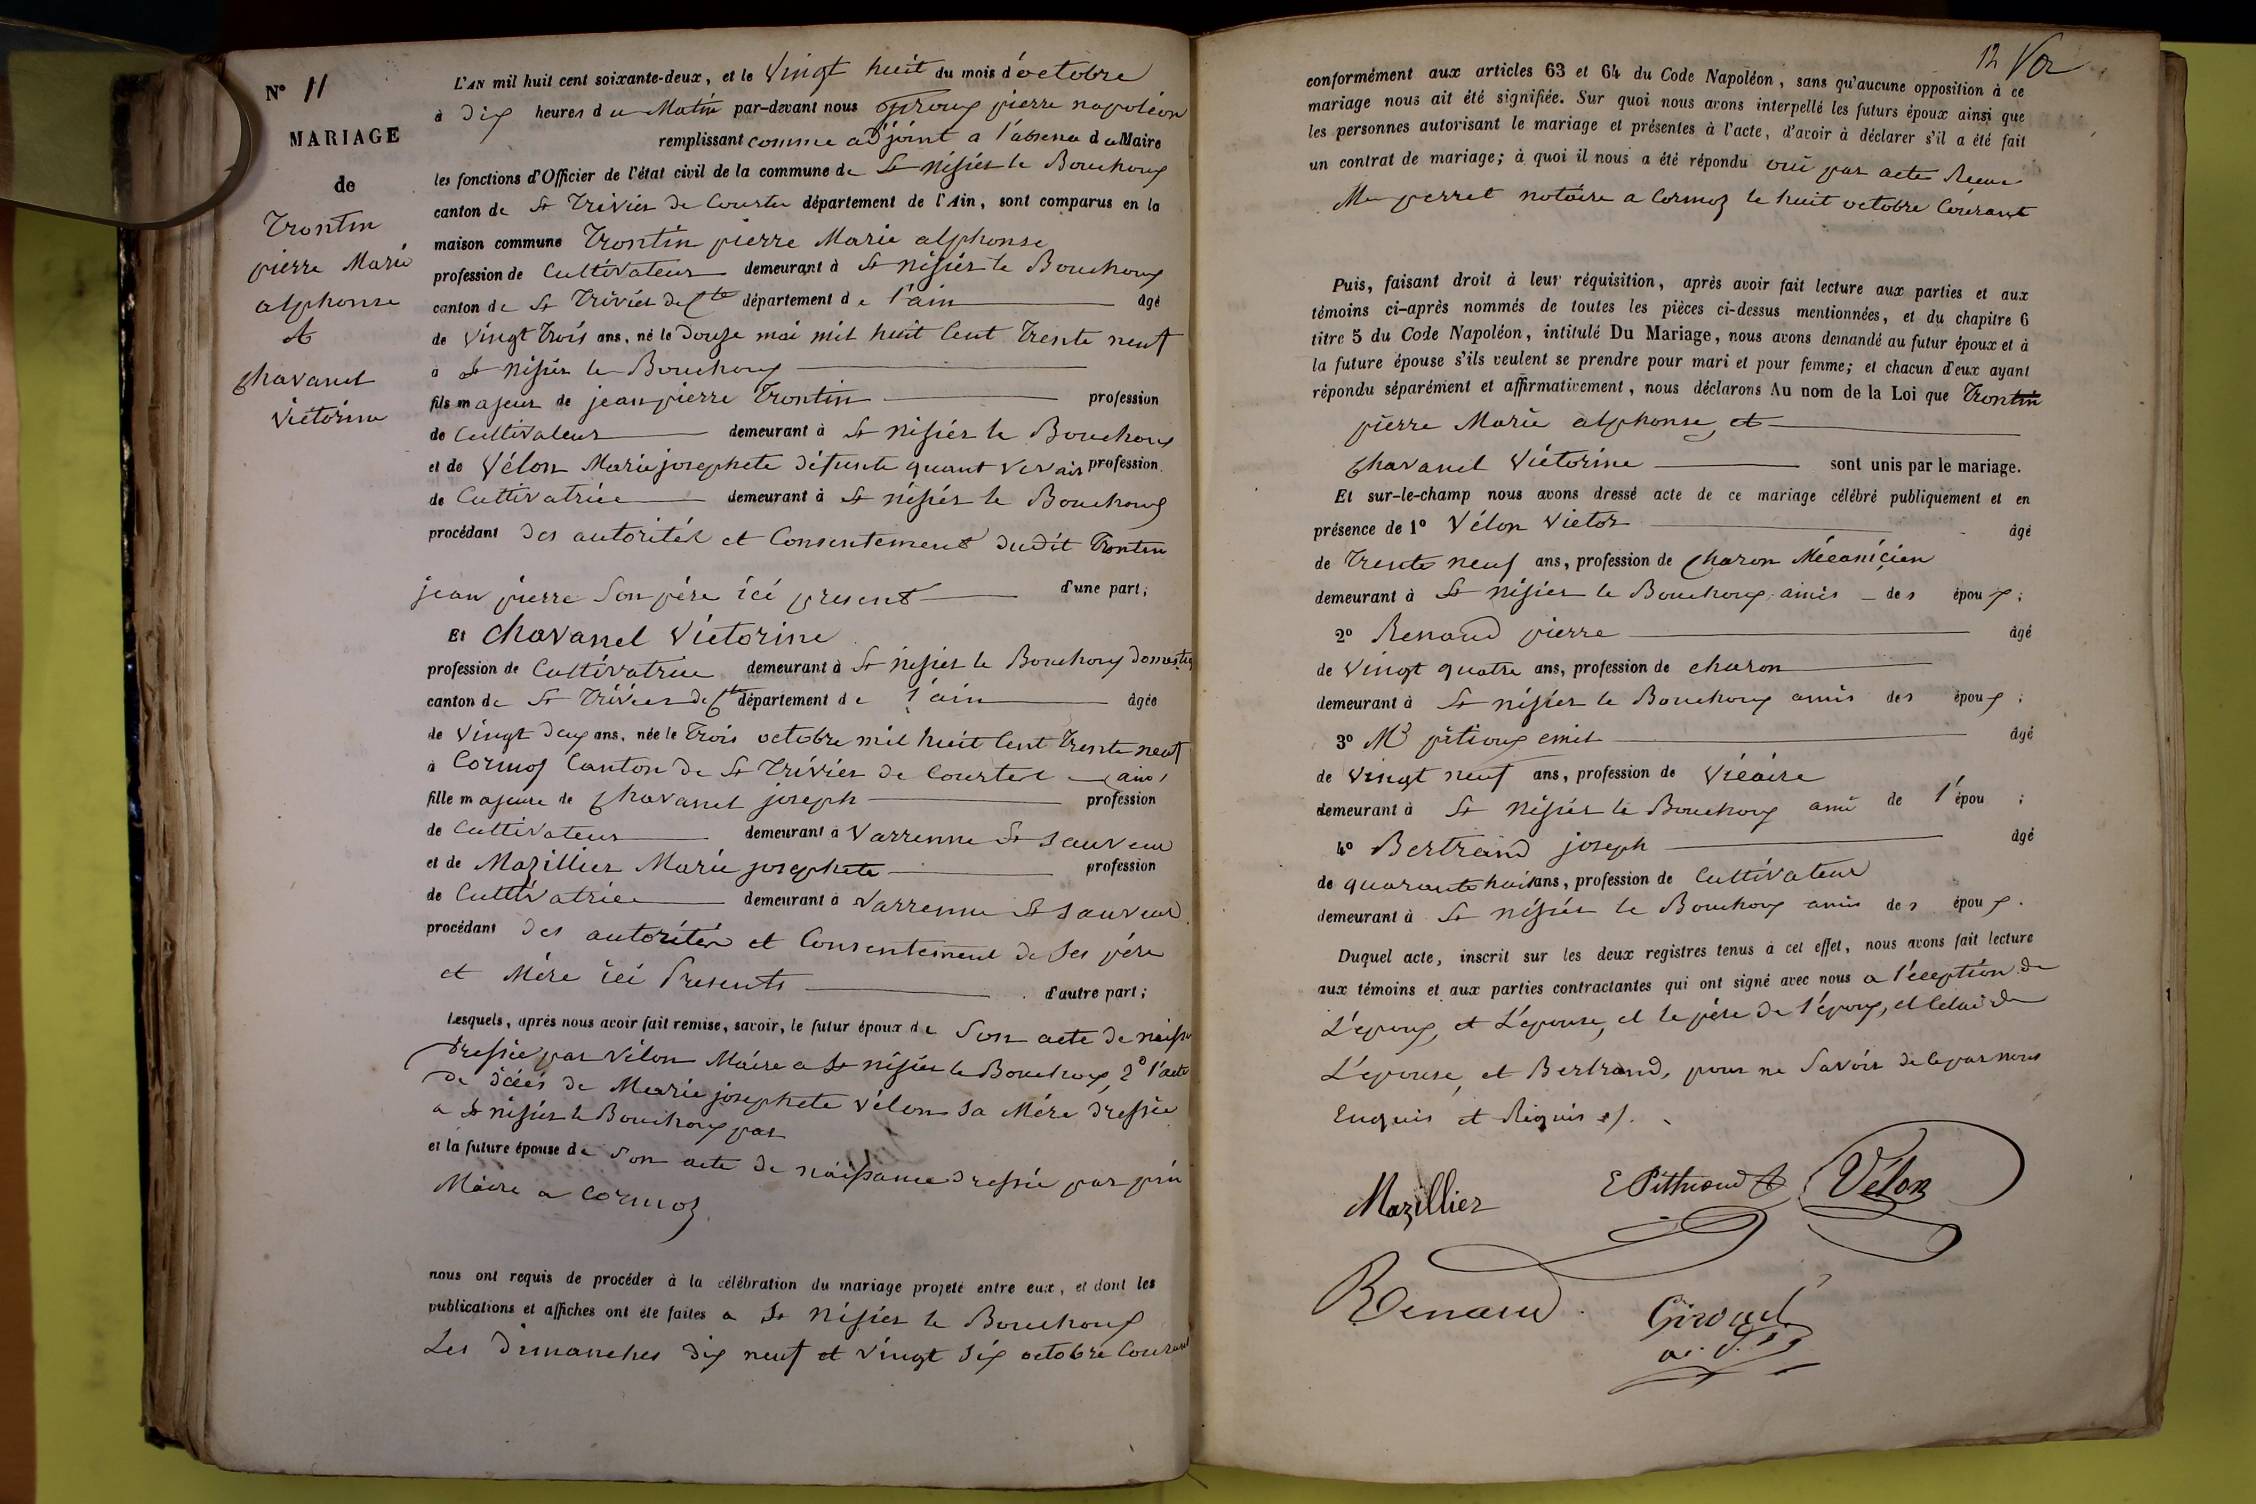 N° 11
MARIAGE
de
Trontin
pierre Marie
alphonse
et
Chavanel
Victorine
L'AN mil huit cent soixante-deux, et le Vingt huit du mois d'octobre
à Dix heures du Matin par-devant nous pierre napoléon
remplissant comme adjoint a l'absence du Maire
les fonctions d'Officier de l'état civil de la commune de St nisiér le Bouchoux
canton de St Triviér de Courte département de l'Ain, sont comparus en la
maison commune Trontin pierre Marie alphonse
profession de Cultivateur demeurant à St nisiér le Bouchoux
canton de St Triviér de Cte département de l'ain âgé
de Vingt Trois ans, né le Douze mai mil huit Cent Trente neuf
à St nisiér le Bouchoux
fils majeur de jean pierre Trontin profession
de Cultivateur demeurant à St nisiér le Bouchoux
et de Vélon Marie josephete défunte quant vivais profession
de Cultivatrice demeurant à St nisiér le Bouchoux
procédant des autorités et Consentement dudit Trontin
jean pierre Son pére ici present d'une part;
Et Chavanel Victorine
profession de Cultivatrice demeurant à St nisier le Bouchoux domestiq
canton de St Triviér de Cte département de l'ain âgée
de Vingt Deux ans, née le Trois octobre mil huit Cent Trente neuf
à Cormoz Canton de St Triviér de Courtes ain
fille majeure de Chavanel joseph profession
de Cultivateur demeurant à Varrenne St Sauveur
et de Mazillier Marie josephete profession
de Cultivatrice demeurant à Varrenne St Sauveur
procédant des autorités et Consentement de Ses pére
et Mére ici Presents d'autre part;
Lesquels, après nous avoir fait remise, savoir, le futur époux de Son acte de naiss
Dressée par Vélon Maire a St nisiér le Bouchoux, 2° l'acte
de décés de Marie josephete Vélon Sa Mére Dressée
a St nisiér le Bouchoux par
et la future épouse de Son acte de naissance Dressée par
Maire a Cormoz
nous ont requis de procéder à la célébration du mariage projeté entre eux, et dont les
publications et affiches ont été faites a St nisiér le Bouchoux
Les Dimanches Dix neuf et Vingt Six octobre Courant
12
conformément aux articles 63 et 64 du Code Napoléon, sans qu'aucune opposition à ce
mariage nous ait été signifiée. Sur quoi nous avons interpellé les futurs époux ainsi que
les personnes autorisant le mariage et présentes à l'acte, d'avoir à déclarer s'il a été fait
un contrat de mariage; à quoi il nous a été répondu oui par acte Recue
Me perret notaire a Cormoz le huit octobre Courant
Puis, faisant droit à leur réquisition, après avoir fait lecture aux parties et aux
témoins ci-après nommés de toutes les pièces ci-dessus mentionnées, et du chapitre 6
titre 5 du Code Napoléon, intitulé Du Mariage, nous avons demandé au futur époux et à
la future épouse s'ils veulent se prendre pour mari et pour femme; et chacun d'eux ayant
répondu séparément et affirmativement, nous déclarons Au nom de la Loi que Trontin
pierre Marie alphonse, et
Chavanel Victorine sont unis par le mariage.
Et sur-le-champ nous avons dressé acte de ce mariage célébré publiquement et en
présence de 1° Vélon Victor âgé
de Trente neuf ans, profession de Charon Mécanicien
demeurant à St nisiér le Bouchoux amis des époux;
2° Renaud pierre âgé
de Vingt quatre ans, profession de charon
demeurant à St nisiér le Bouchoux amis des époux;
3° Mr pitioux emil âgé
de Vingt neuf ans, profession de Vicaire
demeurant à St nisiér le Bouchoux ami de l'épou;
4° Bertrand joseph âgé
de quarante huit ans, profession de Cultivateur
demeurant à St nisiér le Bouchoux amis des époux.
Duquel acte, inscrit sur les deux registres tenus à cet effet, nous avons fait lecture
aux témoins et aux parties contractantes qui ont signé avec nous a l'éception de
L'epoux, et L'epouse, et le pére de l'époux, et Celui de
L'epouse, et Bertrand, pour ne Savoir de ce par nous
Enquis et Requis
Mazillier E Pithioud Vélon
Renaud Giroud